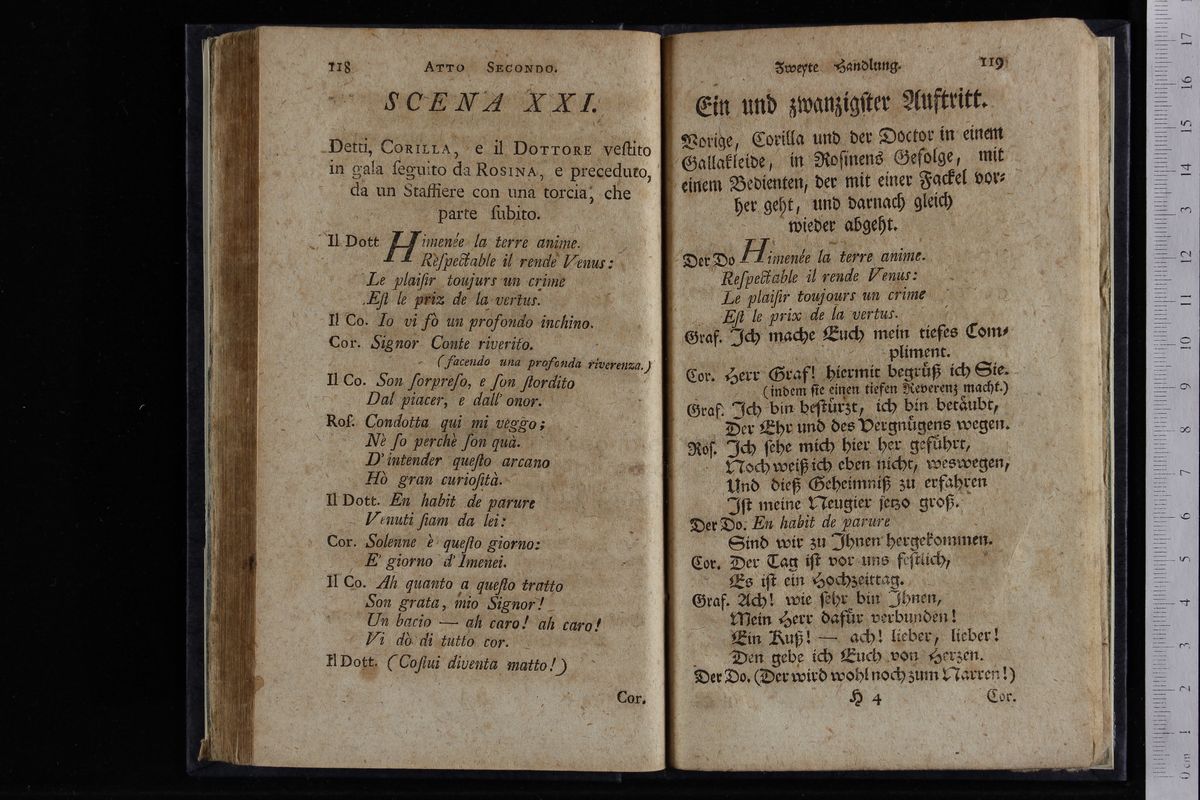 118 ATTO SECONDO.
SCENA XXI.
Detti, CORILLA, e il DOTTORE veſtito
in gala ſeguito da ROSINA, e preceduto,
da un Staffiere con una torcia, che
parte ſubito.
Il Dott Himenée la terre anime.
Rèſpectable il rende Venus:
Le plaiſir toujurs un crime
Eſt le priz de la vertus.
Il Co. Io vi fò un profondo inchino.
Cor. Signor Conte riverito.
(facendo una profonda riverenza.)
Il Co. Son ſorpreſo, e ſon ſtordito
Dal piacer, e dall' onor.
Roſ. Condotta qui mi veggo;
Nè ſo perchè ſon quà.
D' intender queſto arcano
Hò gran curioſità.
Il Dott. En habit de parure
Venuti ſiam da lei:
Cor. Solenne è queſto giorno:
E' giorno d' Imenei.
Il Co. Ah quanto a queſto tratto
Son grata, mio Signor!
Un bacio — ah caro! ah caro!
Vi dò di tutto cor.
Il Dott. (Coſtui diventa matto!)
Cor.
Zweyte Handlung. 119
Ein und zwanzigſter Auftritt.
Vorige, Corilla und der Doctor in einem
Gallakleide, in Roſinens Gefolge, mit
einem Bedienten, der mit einer Fackel vor⸗
her geht, und darnach gleich
wieder abgeht.
Der Do Himenée la terre anime.
Reſpectable il rende Venus:
Le plaiſir toujours un crime
Eſt le prix de la vertus.
Graf. Ich mache Euch mein tiefes Com⸗
pliment.
Cor. Herr Graf! hiermit begrüß ich Sie.
(indem ſie einen tiefen Reverenz macht.)
Graf. Ich bin beſtürzt, ich bin betäubt,
Der Ehr und des Vergnügens wegen.
Roſ. Ich ſehe mich hier her geführt,
Noch weiß ich eben nicht, weswegen,
Und dieß Geheimniß zu erfahren
Iſt meine Neugier jetzo groß.
Der Do. En habit de parure
Sind wir zu Ihnen hergekommen.
Cor. Der Tag iſt vor uns feſtlich,
Es iſt ein Hochzeittag.
Graf. Ach! wie ſehr bin Ihnen,
Mein Herr dafür verbunden!
Ein Kuß! — ach! lieber, lieber!
Den gebe ich Euch von Herzen.
Der Do. (Der wird wohl noch zum Narren!)
H 4 Cor.